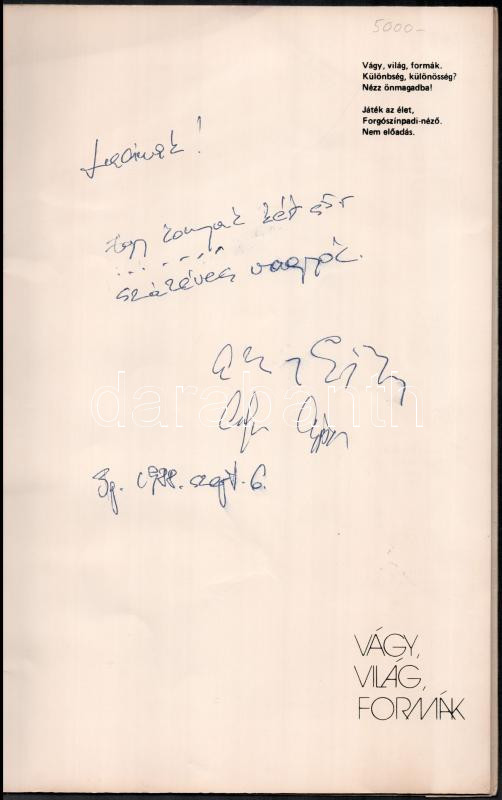 5000-
Vágy, világ, formák.
Különbség, különösség?
Nézz önmagadba!
Játék az élet,
Forgószínpadi-néző.
Nem előadás.
Lacinak!
Egy konyak két sör
százéves vagyok.
darabanth
Bp. 1988. szept. 6.
VÁGY,
VILÁG,
FORMÁK